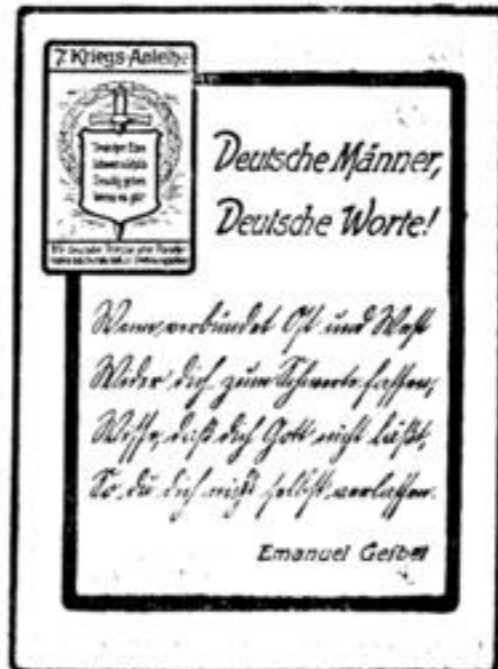 7. Kriegs-Anleihe
Deutsche Männer,
Deutsche Worte!
Wenn, verbündet Ost und West
Wider dich zum Schwerte fassen,
Wisse, daß dich Gott nicht läßt,
So du dich nicht selbst verlassen.
Emanuel Geibel